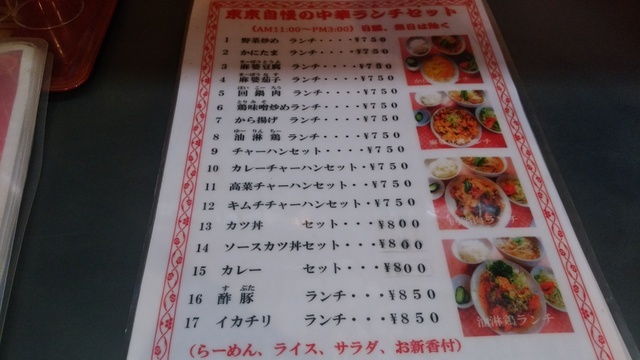 東京自慢の中華ランチセット
(AM11:00～PM3:00) 日曜、祭日は除く
1 野菜炒め ランチ・・・・¥750
2 かにたま ランチ・・・・¥750
まーぼーどうふ
3 麻婆豆腐 ランチ・・・・¥750
まーぼーなす
4 麻婆茄子 ランチ・・・・¥750
ほい こー ろう
5 回鍋肉 ランチ・・・・¥750
とり み そ
6 鶏味噌炒めランチ・・・・¥750
7 から揚げ ランチ・・・・¥750
ゆー りん ちー
8 油淋鶏 ランチ・・・・¥750
9 チャーハンセット・・・・¥750
10 カレーチャーハンセット・¥750
11 高菜チャーハンセット・・¥750
12 キムチチャーハンセット・¥750
13 カツ丼 セット・・・¥800
14 ソースカツ丼セット・・・¥800
15 カレー セット・・・¥800
す ぶた
16 酢豚 ランチ・・・¥850
17 イカチリ ランチ・・・¥850
(らーめん、ライス、サラダ、お新香付)
油淋鶏ランチ